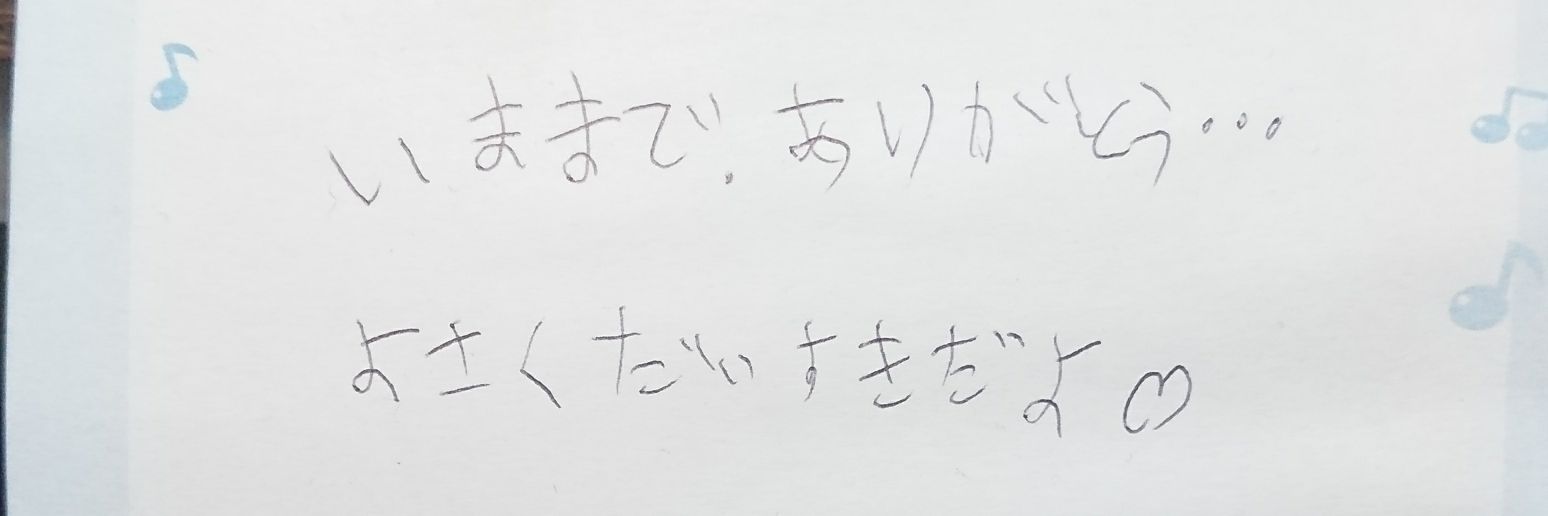 いままで、ありがとう...
よさくだいすきだよ♡